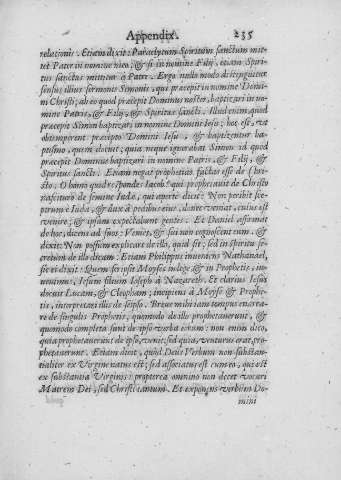 Appendix. 235
relationis. Etiam dixit: Paracletum Spiritum sanctum mit-
tet Pater in nomine meo, & si in nomine Filij, etiam Spiri-
tus sanctus mittitur à Patre. Ergo nullo modo distinguitur
sensus illius sermonis Simonis, qui præcepit in nomine Domi-
ni Christi; ab eo quod præcepit Dominus noster, baptizari in no-
mine Patris, & Filij, & Spiritus sancti. Illud enim, quod
præcepit Simon baptizari in nomine Domini Iesu; hoc est, vt
obtemperent præcepto Domini Iesu, & baptizentur ba-
ptismo, quem docuit; quia neque ignorabat Simon id quod
præcepit Dominus baptizari in nomine Patris, & Filij, &
Spiritus sancti. Etiam negat prophetias factas esse de Chri-
sto. O homo quid respondes Iacob? qui prophetauit de Christo
nascituro de semine Iuda, qui apertè dicit: Non peribit sce-
ptrum è Iuda, & dux è pedibus eius, donec veniat, cuius est
venire; & ipsum expectabunt gentes. Et Daniel affirmat
de hoc, dicens ad suos: Veniet, & sui non cognoscent eum. &
dixit: Non possum explicare de illo, quid sit; sed in Spiritu se-
cretum de illo dicam. Etiam Philippus inueniens Nathanael,
sic ei dixit: Quem scripsit Moyses in lege, & in Prophetis, in-
uenimus, Iesum filium Ioseph à Nazareth. Et clarius Iesus
docuit Lucam, & Cleopham; incipiens à Moyse & Prophe-
tis, interpretans illis de seipso. Breue mihi iam tempus enarra-
re de singulis Prophetis, quomodo de illo prophetauerunt, &
quomodo completa sunt de ipso verba eorum: non enim dico,
quia prophetauerunt de ipso, venit; sed quia, venturus erat, pro-
phetauerunt. Etiam dicit, quòd Deus Verbum non substan-
tialiter ex Virgine natus est; sed associatus est cum eo, qui est
ex substantia Virginis: propterea omnino non decet vocari
Matrem Dei, sed Christi tantum. Et exponens verbum Do-
mini